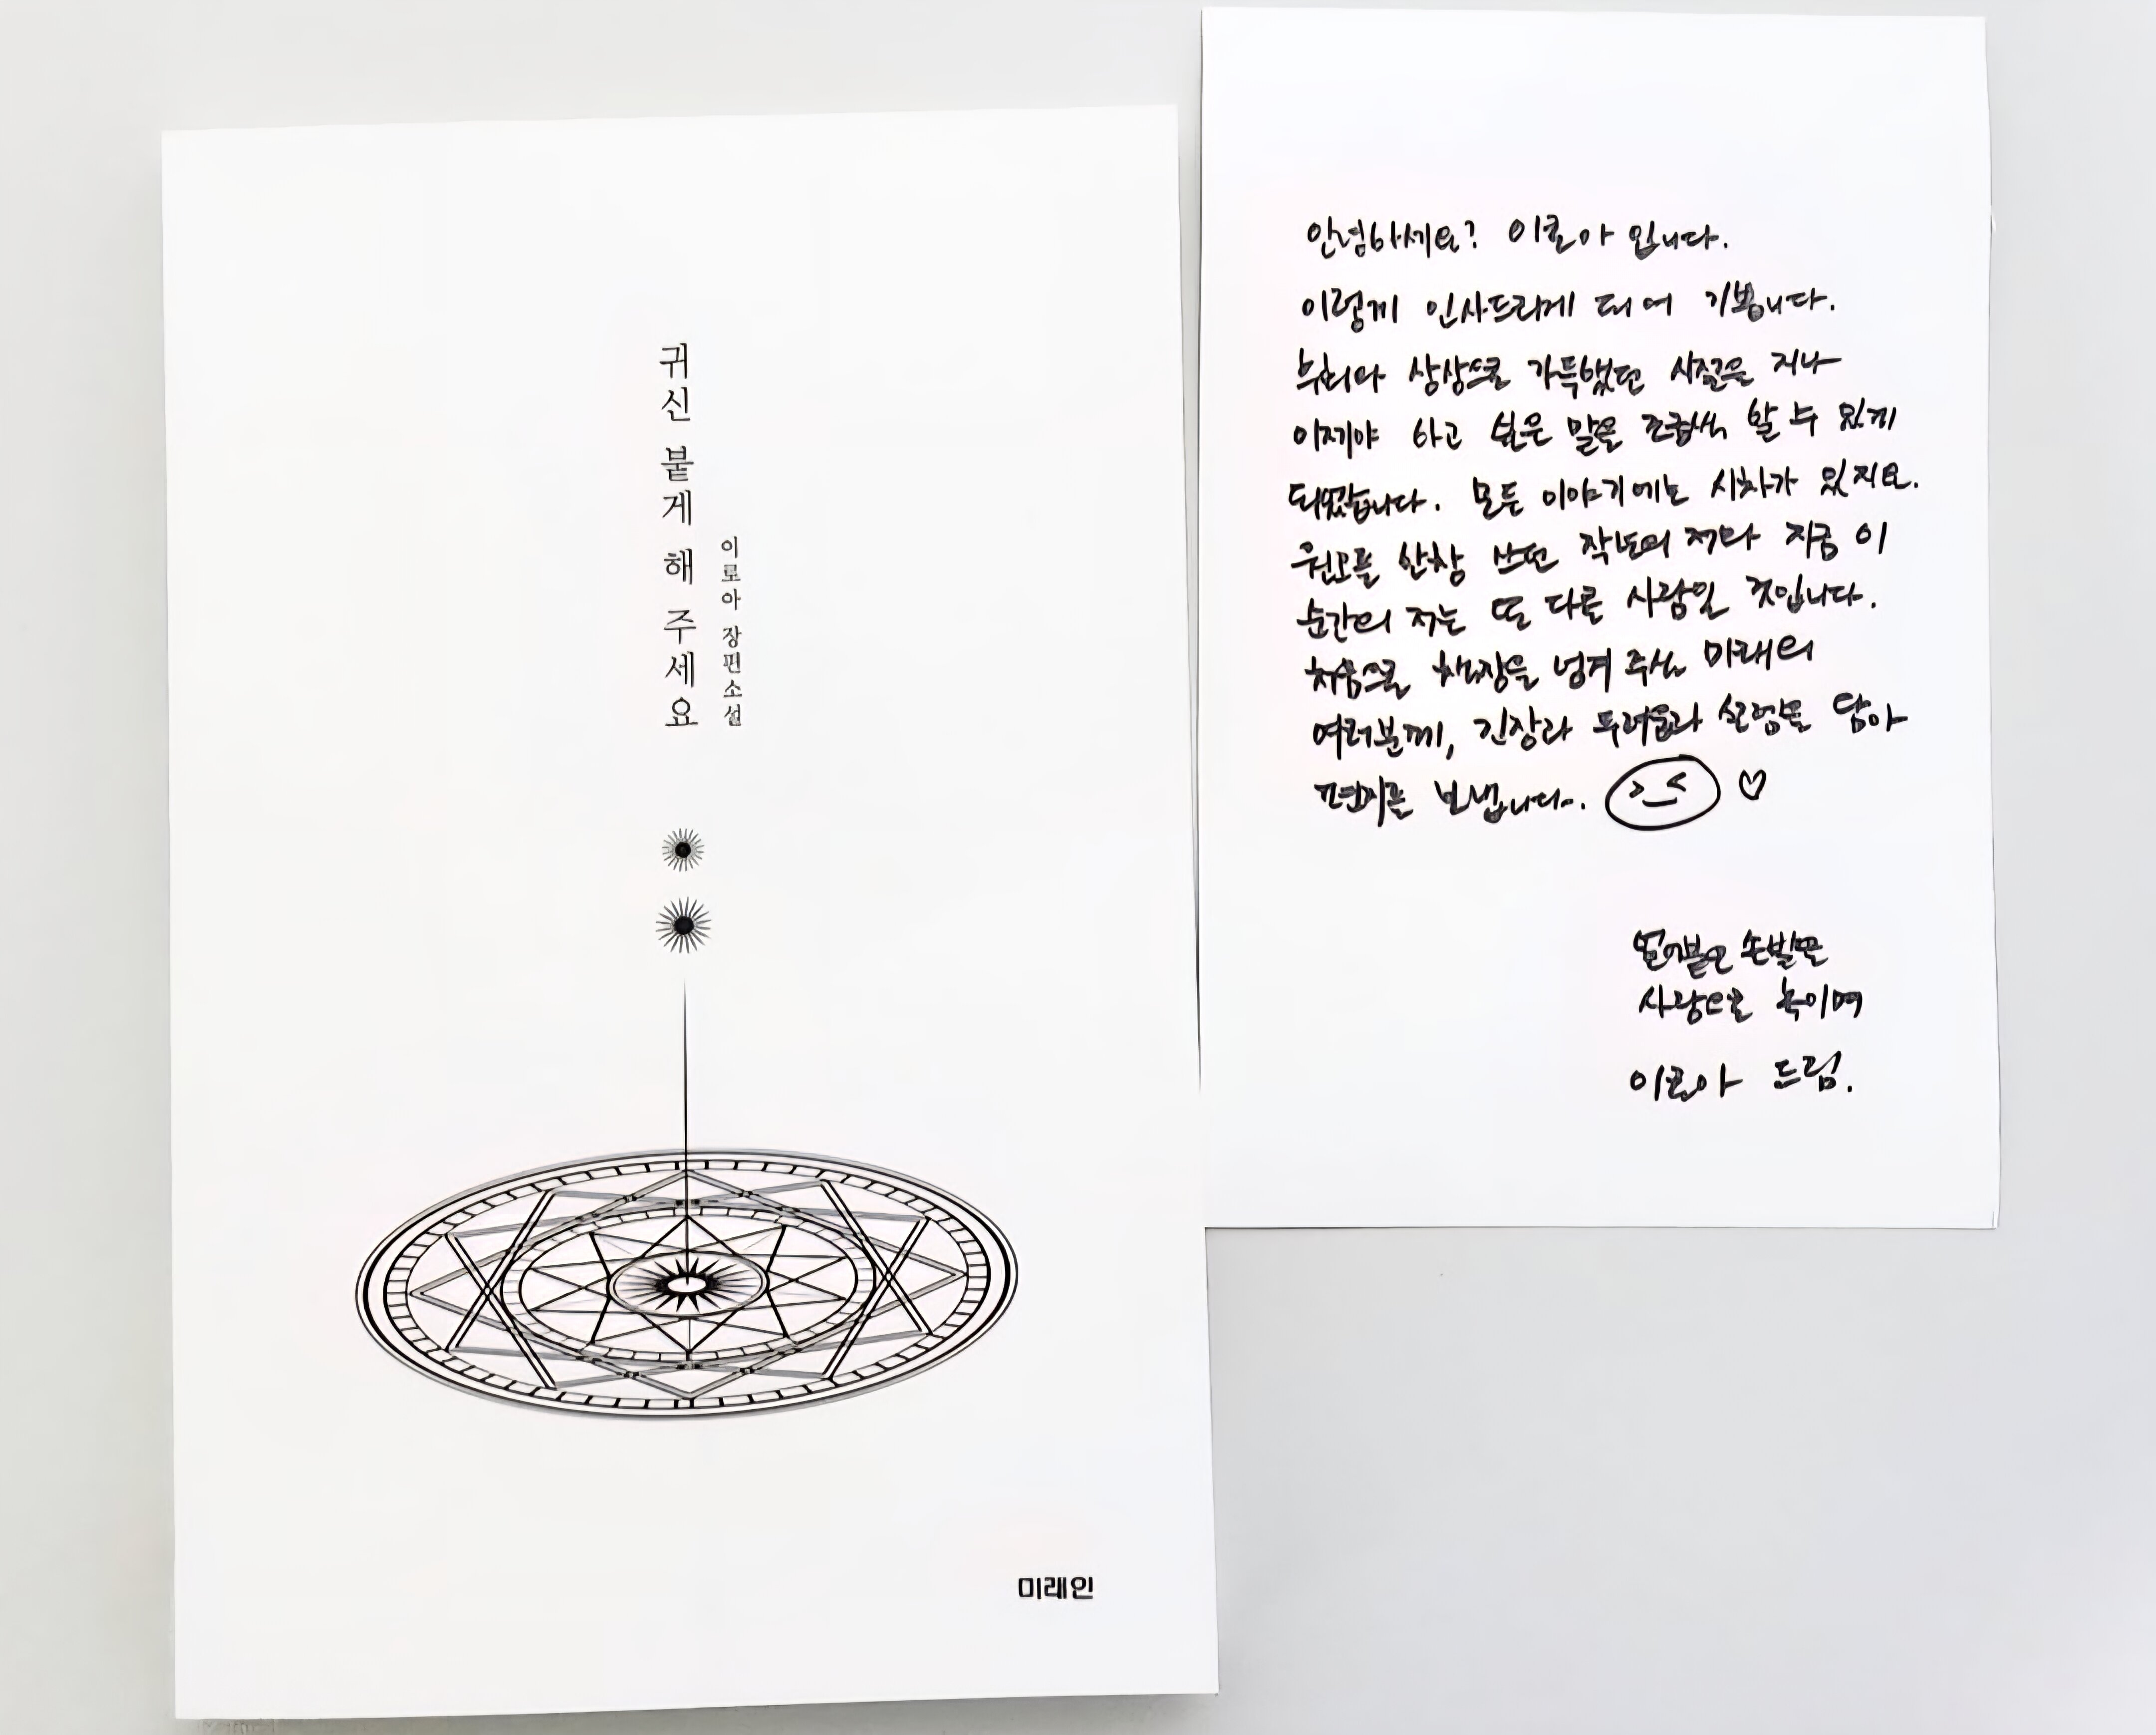 귀신 붙게 해 주세요
이로아 장편소설
미래인
안녕하세요? 이로아 입니다.
이렇게 인사드리게 되어 기쁩니다.
상상으로 가득했던 시절을 지나
이제야 하고 싶은 말을 조금씩 할 수 있게
되었습니다. 모든 이야기에는 시차가 있지요.
원고를 한창 쓰던 작년의 저와 지금 이
순간의 저는 또 다른 사람일 것입니다.
처음으로 책장을 넘겨 주신 미래의
여러분께, 긴장과 두려움과 설렘을 담아
편지를 보냅니다.
얼어붙은 손발을
사랑으로 녹이며
이로아 드림.